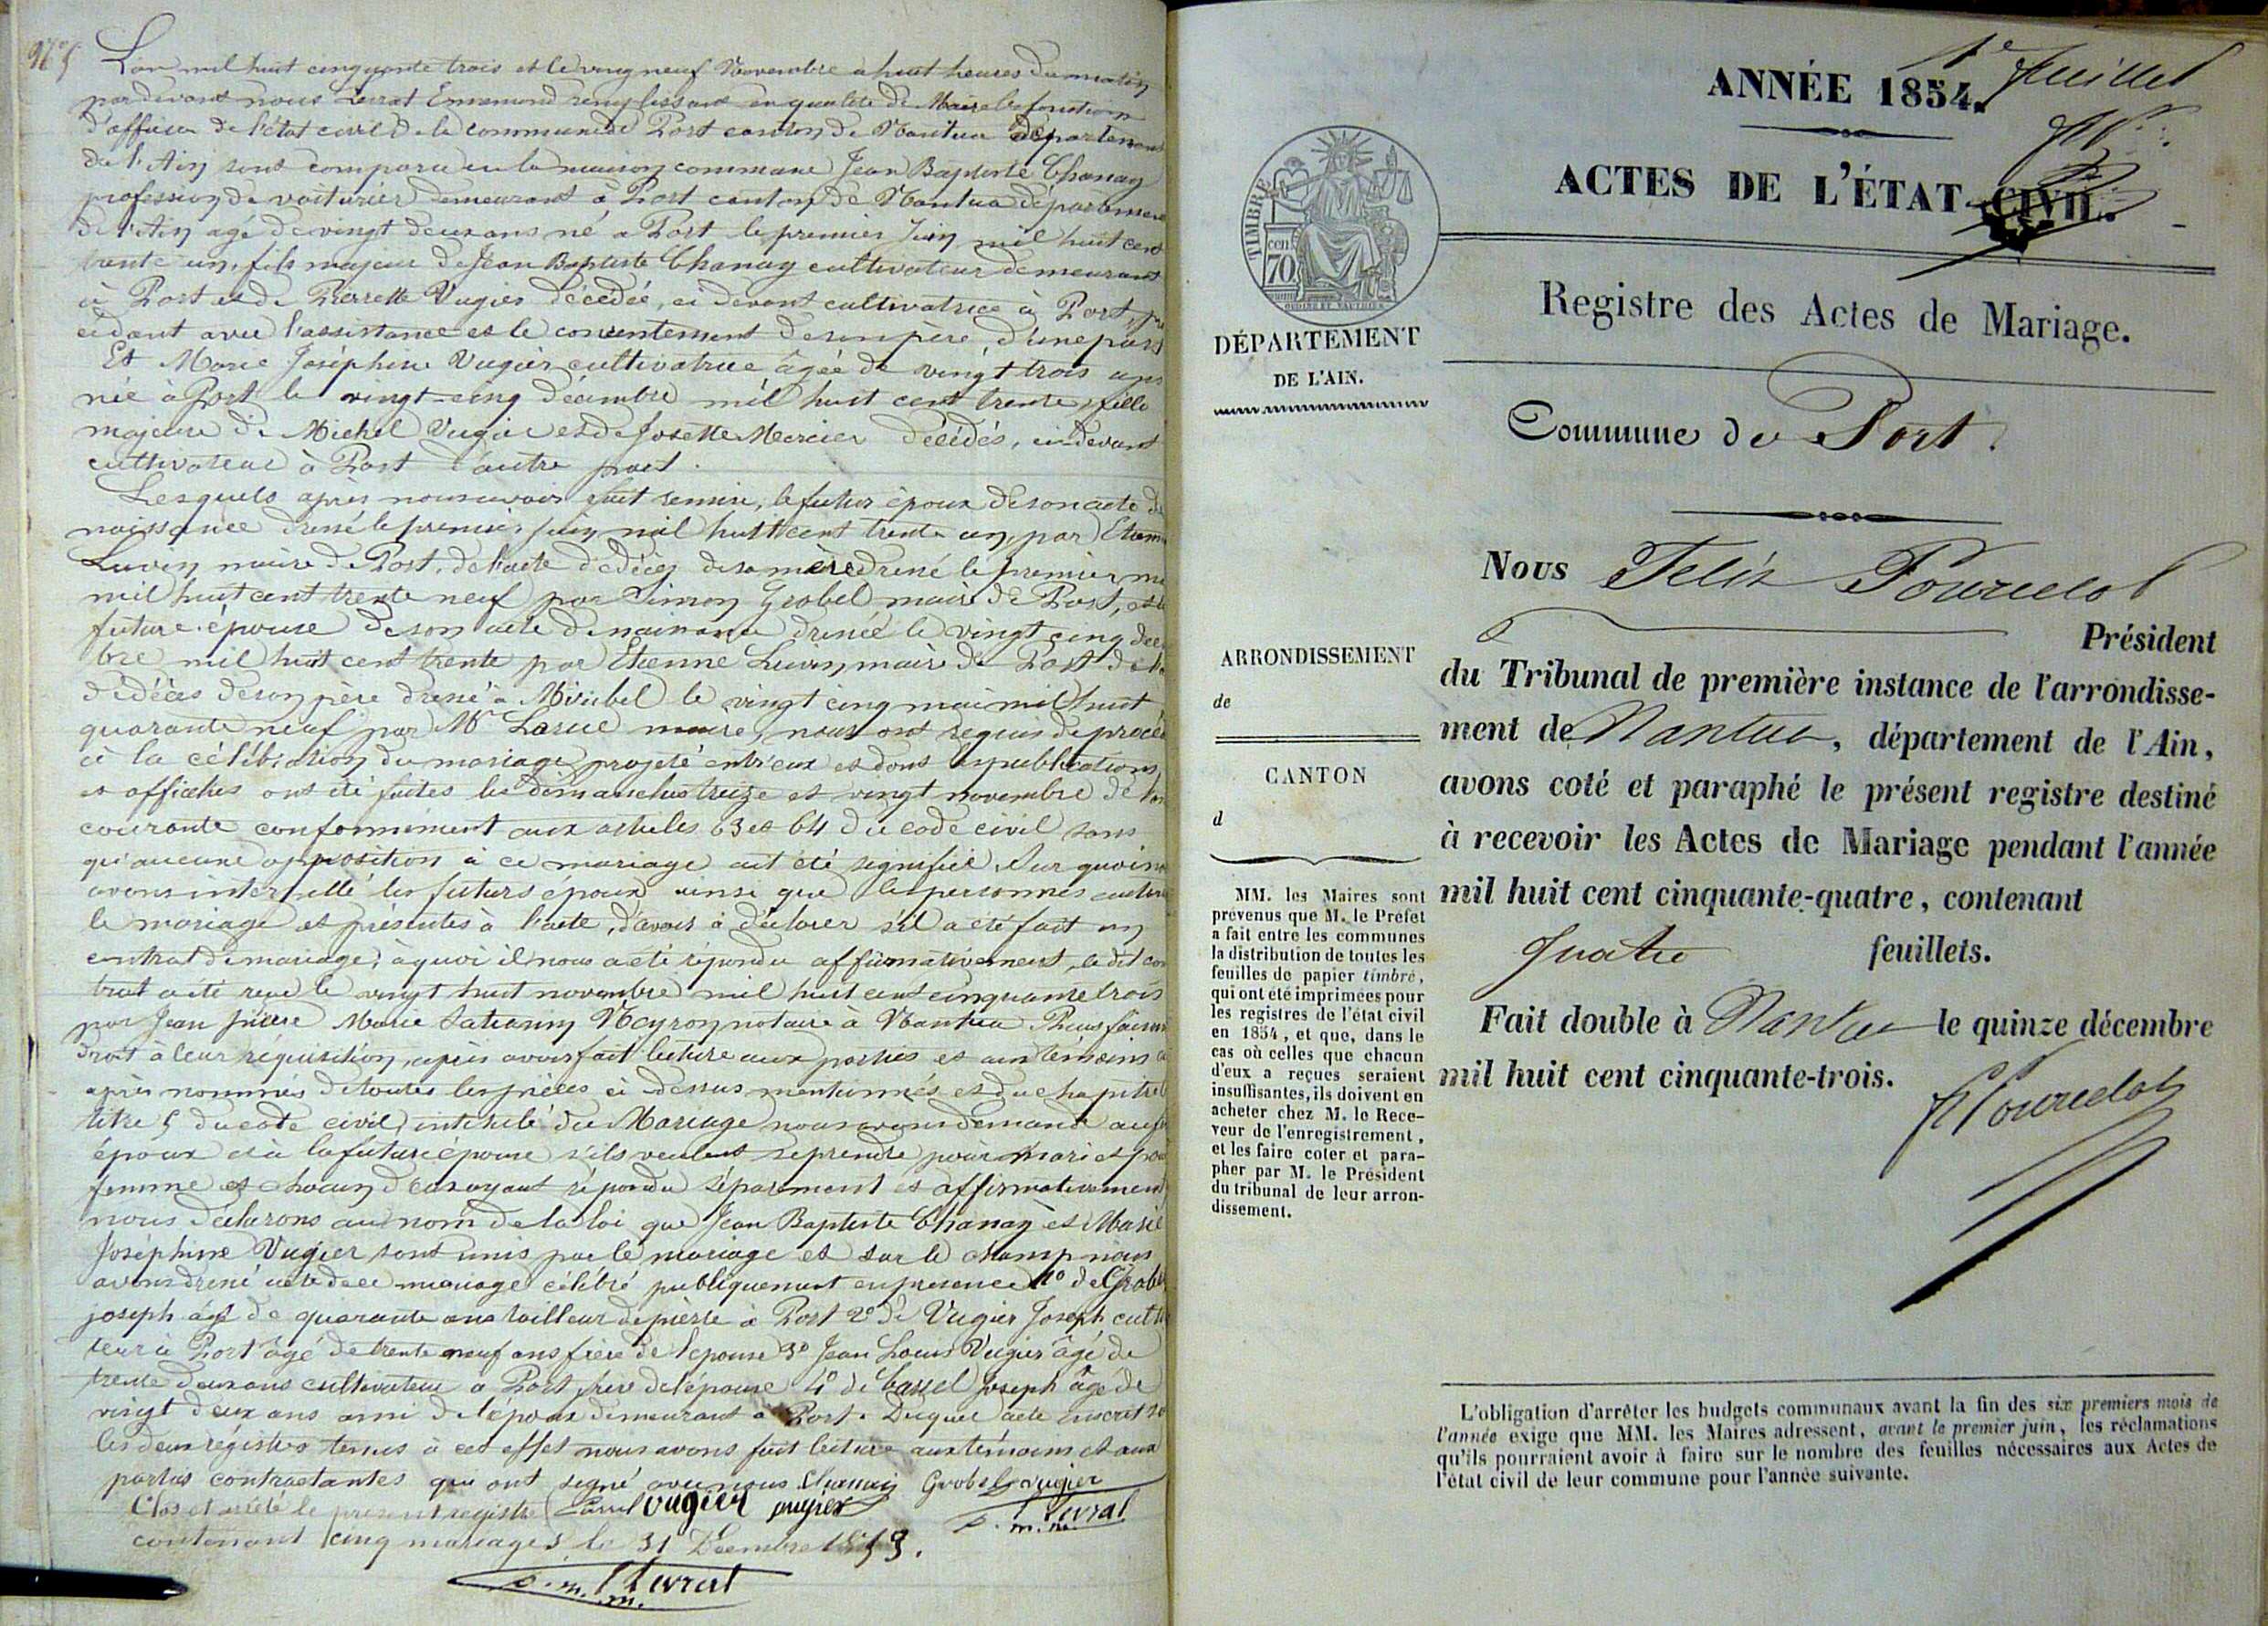 N° 5
L'an mil huit cinquante trois et le vingt neuf Novembre à huit heures du matin
par devant nous Levrat Ennemond remplissant en qualité de Maire les fonctions
d'officier de l'état civil de la commune de Port canton de Nantua département
de l'Ain sont comparu en la maison commune Jean Baptiste Chanay
profession de voiturier demeurant à Port canton de Nantua département
de l'Ain agé de vingt deux ans né à Port le premier Juin mil huit cent
trente un, fils majeur de Jean Baptiste Chanay cultivateur demeurant
à Port et de Pierrette Vugier décédée, ci devant cultivatrice à Port,
cédant avec l'assistance et le consentement de son père, d'une part
Et Marie Joséphine Vugier cultivatrice âgée de vingt trois ans
née à Port le vingt-cinq décembre mil huit cent trente, fille
majeure de Michel Vugier et de Josette Mercier décédés, ci devant
cultivateur à Port d'autre part.
Lesquels après nous avoir fait remise, le futur époux de son acte de
naissance dressé le premier juin mil huit cent trente un, par Etienne
Luvin maire de Port, de l'acte de décès de sa mère dressé le premier
mil huit cent trente neuf par Simon Grobel maire de Port, et la
future épouse de son acte de naissance dressé le vingt cinq décem
bre mil huit cent trente par Etienne Luvin, maire de Port de
décès de son père dressé à Miribel le vingt cinq mai mil huit
quarante neuf par Mr maire, nous ont requis de procéd
à la célébration du mariage projeté entr'eux et dont les publications
et affiches ont été faites les dimanches treize et vingt novembre de
courante conformément aux articles 63 et 64 du code civil sans
qu'aucune opposition à ce mariage ait été signifiée. Sur quoi
avons interpellé les futurs époux ainsi que les personnes
le mariage et présentes à l'acte, d'avoir à déclarer s'il a été fait un
contrat de mariage, à quoi il nous a été répondu affirmativement, le dit con
trat a été reçu le vingt huit novembre mil huit cent cinquante trois
par Jean Pierre Marie notaire à Nantua
droit à leur réquisition, après avoir fait lecture aux parties et aux témoins
après nommés de toutes les pièces ci-dessus mentionnés et du chapitre
titre 5 du code civil intitulé du Mariage nous avons demandé au
époux et à la future épouse s'ils veulent se prendre pour mari et pour
femme et chacun d'eux ayant répondu séparément et affirmativement
nous déclarons au nom de la loi que Jean Baptiste Chanay et Marie
Joséphine Vugier sont unis par le mariage et sur le champ nous
avons dressé acte de ce mariage célébré publiquement en présence 1° de Grobel
joseph âgé de quarante ans tailleur de pierre à Port 2° de Vugier Joseph culti
teur à Port âgé de trente neuf ans frère de l'épouse 3° Jean Louis Vugier âgé de
trente deux ans cultivateur à Port frère de l'épouse 4° de Carrel Joseph âgé de
vingt deux ans ami de l'époux demeurant à Port. Duquel acte inscrit
les deux régistres tenus à cet effet nous avons fait lecture aux témoins et aux
parties contractantes qui ont signé avec nous Chanay Grobel Vugier
Clos et arrêté le présent registre Carrel vugier vugier Levrat
contenant cinq mariages le 31 Décembre 1853.
Levrat
1e feuillet
ANNÉE 1854.
ACTES DE L'ÉTAT-CIVIL.
TIMBRE
cen 70
Registre des Actes de Mariage.
DÉPARTEMENT
DE L'AIN.
Commune de Port
Nous Félix Pourcelot
Président
ARRONDISSEMENT
de
CANTON
d
du Tribunal de première instance de l'arrondisse-
ment de Nantua, département de l'Ain,
avons coté et paraphé le présent registre destiné
à recevoir les Actes de Mariage pendant l'année
mil huit cent cinquante-quatre, contenant
quatre feuillets.
Fait double à Nantua le quinze décembre
mil huit cent cinquante-trois.
F Pourcelot
MM. les Maires sont
prévenus que M. le Préfet
a fait entre les communes
la distribution de toutes les
feuilles de papier timbré,
qui ont été imprimées pour
les registres de l'état civil
en 1854, et que, dans le
cas où celles que chacun
d'eux a reçues seraient
insuffisantes, ils doivent en
acheter chez M. le Rece-
veur de l'enregistrement,
et les faire coter et para-
pher par M. le Président
du tribunal de leur arron-
dissement.
L'obligation d'arrêter les budgets communaux avant la fin des six premiers mois de
l'année exige que MM. les Maires adressent, avant le premier juin, les réclamations
qu'ils pourraient avoir à faire sur le nombre des feuilles nécessaires aux Actes de
l'état civil de leur commune pour l'année suivante.